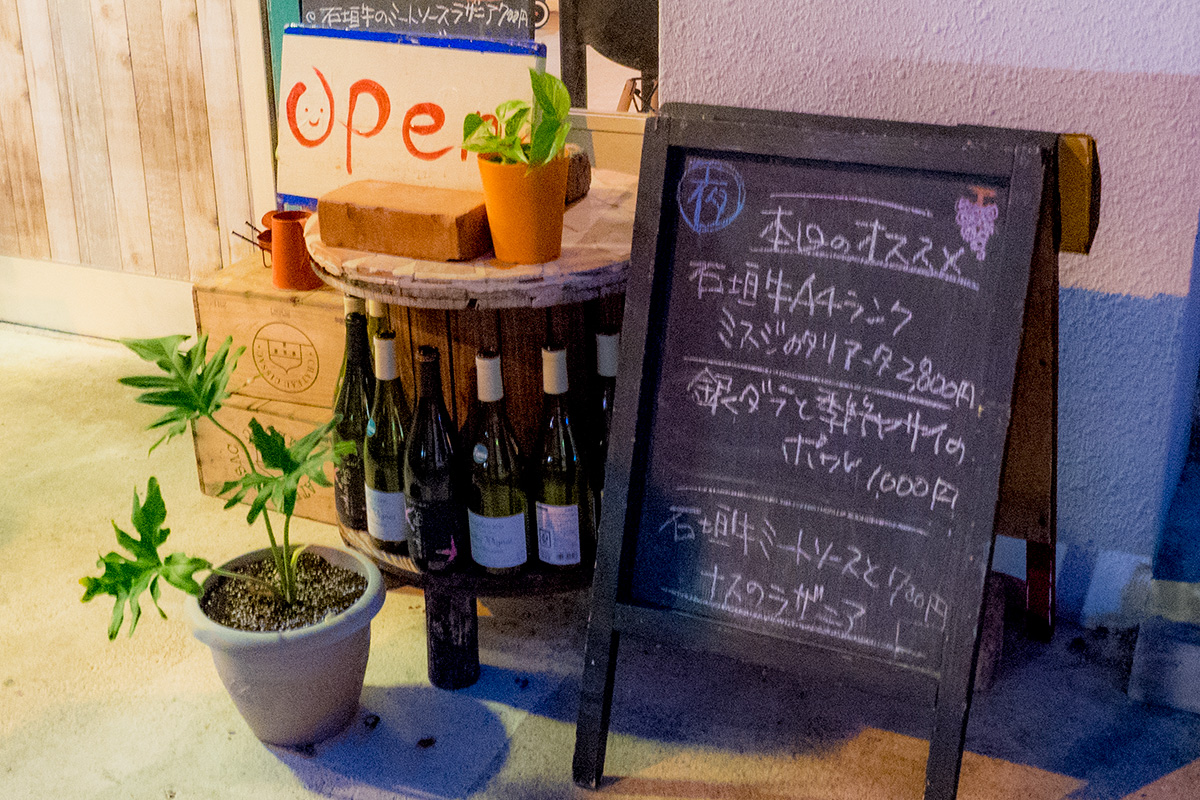 石垣牛のミートソースラザニア700円
open
夜
本日のオススメ
石垣牛A4ランク
ミスジのタリアータ2,800円
銀ダラと季節ヤサイの
ポワレ1,000円
石垣牛ミートソースと700円
ナスのラザニア